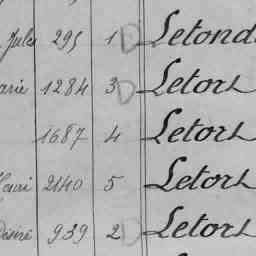 Jules 295 1 D Letond
arie 1284 3 D Letort
1687 4 Letort
Henri 2140 5 Letort
Désiré 939 2 D Letort